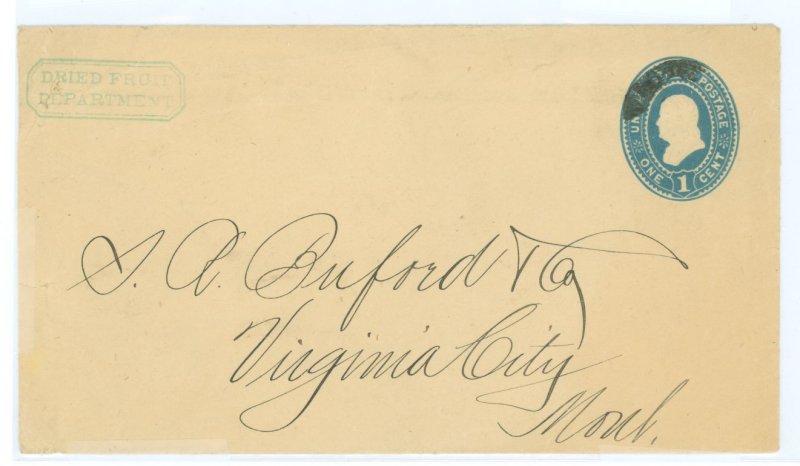 DRIED FRUIT
DEPARTMENT
UNITED STATES POSTAGE
ONE 1 CENT
S. A. Buford & Co
Virginia City
Mont.